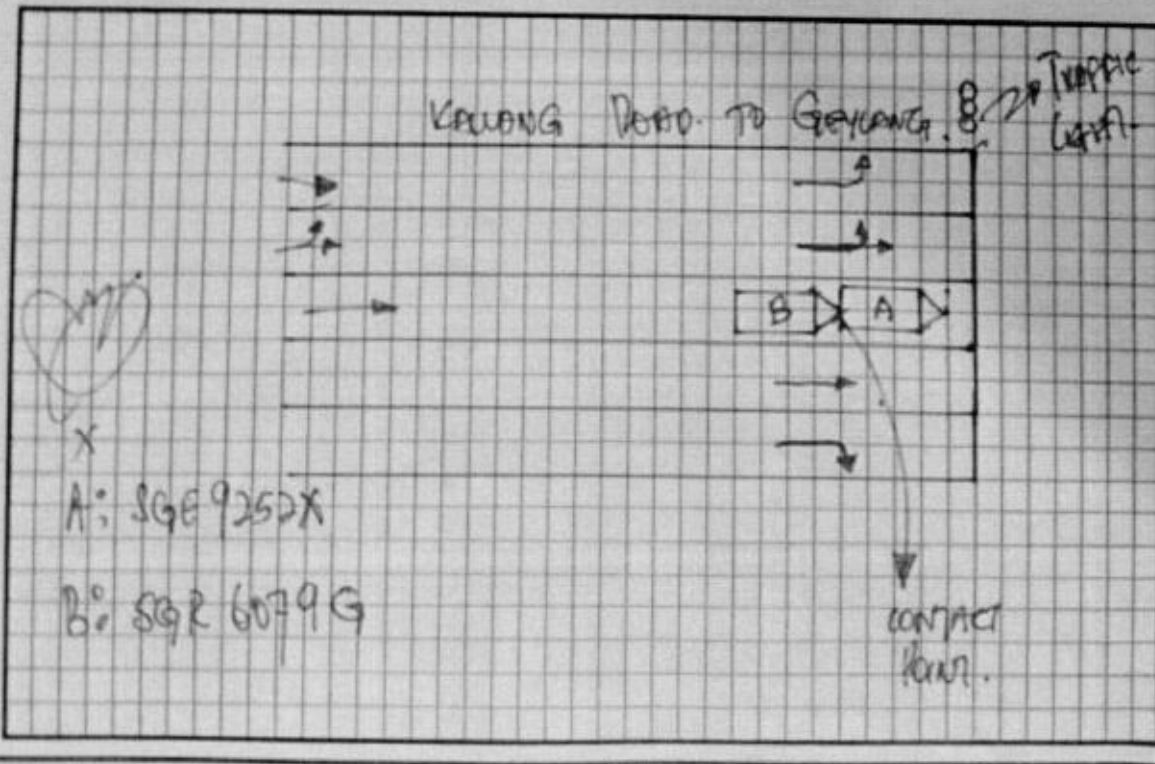 KALLANG ROAD. TO GEYLANG.
TRAFFIC
LIGHT
B A
A: SGE 9252X
B: SGR 6079G
CONTACT
POINT.